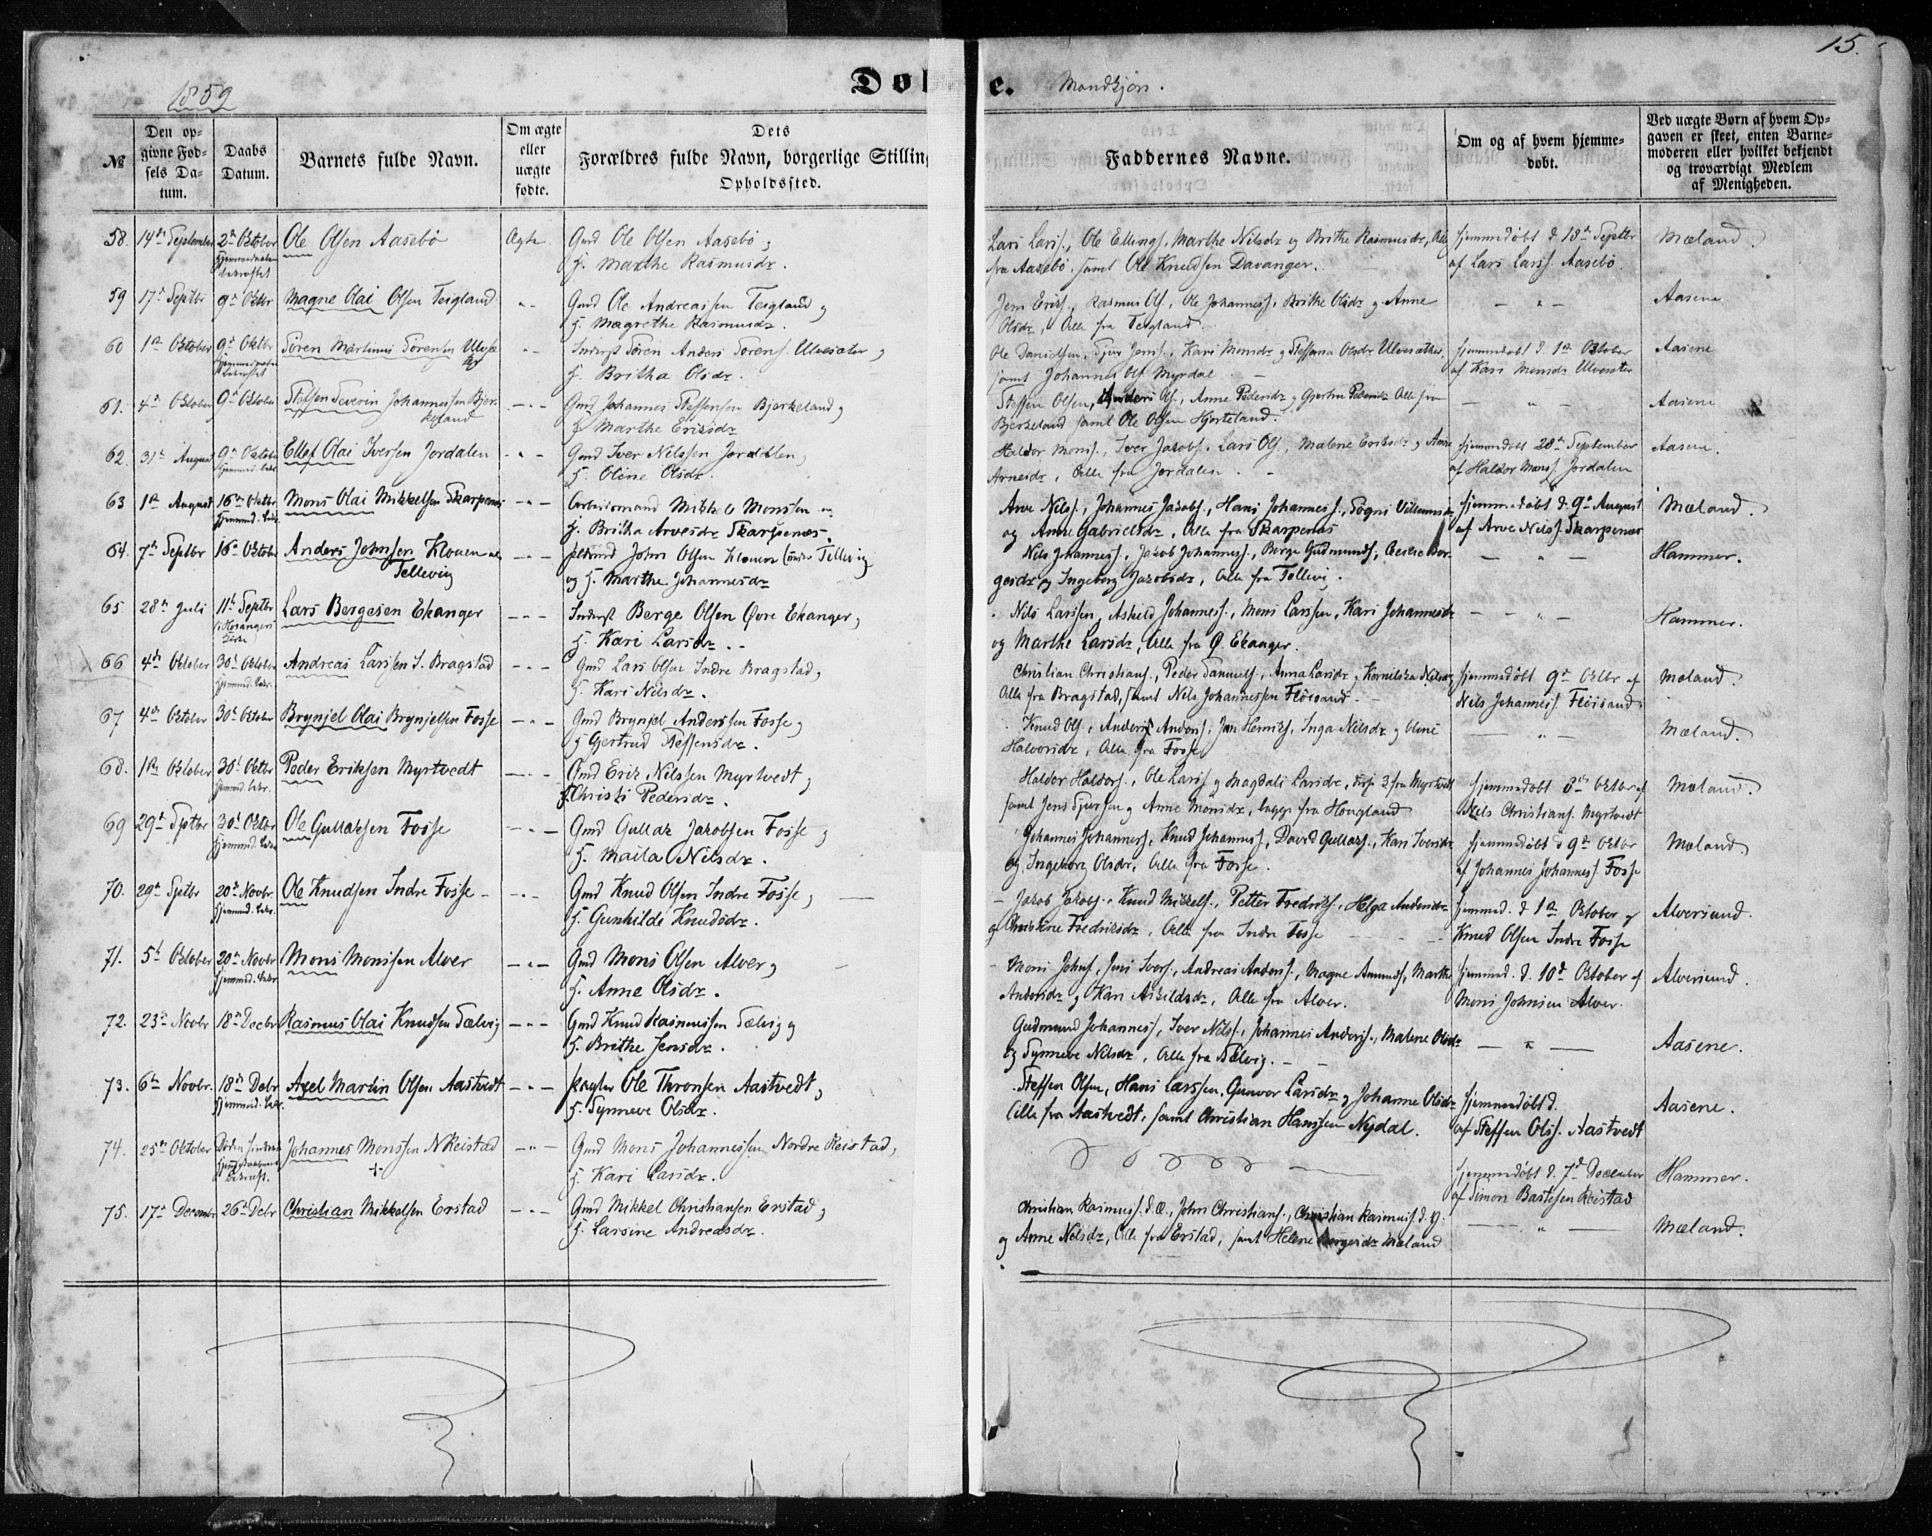 15.
1859
Døb
e.
Mandkjøn.
№
Den op-
givne Fød-
sels Da-
tum.
Daabs
Datum.
Barnets fulde Navn.
Om ægte
eller
uægte
fødte.
Dets
Forældres fulde Navn, borgerlige Stilling
Opholdssted.
Faddernes Navne.
Om og af hvem hjemme-
døbt.
Ved uægte Børn af hvem Op-
gaven er skeet, enten Barne-
moderen eller hvilket bekjendt
og troværdigt Medlem
af Menigheden.
58. 14de September 2den Oktober Ole Olsen Aasebø Ægte Gmd Ole Olsen Aasebø, Lars Larss., Ole Ellings., Marthe Nilsdr og Brithe Rasmusdr, Alle hjemmedøbt d. 18de Septbr Mæland.
H. Marthe Rasmusdr. fra Aasebø, samt Ole Knudsen Davanger. af Lars Larss. Aasebø.
59 17de Septbr 9de Oktbr Magne Olai Olsen Teigland " Gmd Ole Andreassen Teigland og Jens Eriks., Rasmus Ols., Ole Johanness., Brithe Olsdr og Anne — " — Aasene
H. Magrethe Rasmusdr. Olsdr, Alle fra Teigland.
60 1ste Oktober 9de Oktbr Søren Martinus Sørensen " Inderst Søren Anders Sørens. Ulvesæter, Ole Danielsen, Kari Monsdr og Steffana Olsdr Ulvesæther, hjemmedøbt d. 1ste Oktober Aasene
H. Britha Olsdr. samt Johannes Ols. Myrdal af Kari Monsdr Ulvesæter
61. 4de Oktober 9de Oktober Steffen Severin Johannessen Bjer- " Gmd Johannes Steffensen Bjerkeland, Steffen Olsen, Anders Ols., Anne Pedersdr og Gjertru Pedersdr Alle fra — " — Aasene
keland H. Marthe Eriksdr Bjerkeland samt Ole Olsen Hjorteland.
62. 31te August 9de Oktober Ellef Olai Iversen Jordalen " Gmd Iver Nilssen Jordalen, Haldor Monss., Iver Jakobs., Lars Ols., Malene Eriksdr og Anne hjemmedøbt 28de September Aasene.
H. Oline Olsdr. Arnesdr, Alle fra Jordalen. af Haldor Monss. Jordalen
63 1ste August 16de Oktbr Mons Olai Mikkelsen Skarpenes " Arbeidsmand Mikkel Monsen og Arve Nilss., Johannes Jakobs., Hans Johanness., Sogni Villumsdr hjemmedøbt d. 9de August Mæland.
H. Britha Arvesdr Skarpenæs. og Anne Gabrielsdr, Alle fra Skarpenæs af Arve Nilss. Skarpenæs
64. 7de Septbr 16de Oktober Anders Johnsen Klouen " John Olsen Klouen under Tellevig Nils Johanness., Jakob Johanness., Berge Gudmunds., Bor- — " — Hammer.
Tellevig og H. Marthe Johannesdr gesdr og Ingeborg Jakobsdr, Alle fra Tellevig.
65. 28de Juli 11te Septbr Lars Bergesen Ekanger " Inderst Berge Olsen Øvre Ekanger, Nils Larssen, Askild Johanness., Mons Larssen, Kari Johannesdr — " — Hammer.
H. Kari Larsdr. og Marthe Larsdr, Alle fra Ø. Ekanger.
66 4de Oktober 30te Oktober Andreas Larssen I. Bragstad " Gmd Lars Olsen Indre Bragstad, Christian Christians., Peder Samuels., Anna Larsdr og Kornelska Nilsdr hjemmedøbt 9de Oktbr af Mæland
H. Kari Nilsdr. Alle fra Bragstad, samt Nils Johannessen Fløisand. Nils Johanness. Fløisand
67 4de Oktober 30te Oktober Brynjel Olai Brynjelsen Fosse " Gmd Brynjel Andersen Fosse, Knud Ols., Anders Anders., Jon Henriks., Inga Nilsdr og Oline — " — Mæland.
H. Gjertrud Steffensdr. Halvorsdr, Alle fra Fosse
68. 1ste Oktober 30te Oktbr Peder Eriksen Myrtvedt " Gmd Erik Nilssen Myrtvedt, Haldor Haldors., Ole Larss. og Magdali Larsdr, disse 3 fra Myrtvedt, hjemmedøbt 8de Oktbr af Mæland.
H. Christi Pedersdr. samt Jens Sjursen og Anne Monsdr, begge fra Hougland Nels Christians. Myrtvedt
69 29de Septbr 30te Oktbr Ole Gullaksen Fosse " Gmd Gullak Jakobsen Fosse, Johannes Johanness., Knud Johanness., David Gullaks., Kari Iversdr hjemmedøbt d. 9de Oktbr Mæland.
H. Maila Nilsdr. og Ingeborg Olsdr, Alle fra Fosse. af Johannes Johanness. Fosse
70. 29de Septbr 20de Novbr Ole Knudsen Indre Fosse " Gmd Knud Olsen Indre Fosse, Jakob Jakobs., Knud Mikkels., Petter Fredriks., Helga Andersdr hjemmed. d. 1ste Oktober af Alversund.
H. Gunhilde Knudsdr. og Christene Fredriksdr, Alle fra Indre Fosse Knud Olsen Indre Fosse
71. 5te Oktober 20de Novbr Mons Monssen Alver " Gmd Mons Olsen Alver, Mons Johns., Jens Ivers., Andreas Anders., Magne Amunds., Marthe hjemmed. d. 10de Oktober af Alversund.
H. Anne Olsdr. Andersdr og Kari Askildsdr, Alle fra Alver. Mons Johnsen Alver.
72. 23de Novbr 18de Decbr Rasmus Olai Knudsen Sælvig " Gmd Knud Rasmussen Sælvig og Gudmund Johanness., Iver Nilss., Johannes Anders., Malene Olsdr — " — Aasene.
H. Brithe Jensdr. og Synneve Nilsdr, Alle fra Sælvig.
73. 6te Novbr. 18de Debr Axel Martin Olsen Aastvedt " Ole Thronsen Aastvedt, Steffen Olsen, Hans Larssen, Gunvor Larsdr og Johanne Olsdr hjemmedøbt d. Aasene.
H. Synneve Olsdr. Alle fra Aastvedt, samt Christian Hanssen Nydal. af Steffen Ols. Aastvedt
74. 25de Oktober Johannes Monssen N Reistad " Gmd Mons Johannessen Nordre Reistad, hjemmedøbt d. 7de December Hammer.
H. Kari Larsdr. af Simon Bastesen Reistad
75. 17de December 26de Debr Christian Mikkelsen Erstad " Gmd Mikkel Christiansen Erstad, Christian Rasmuss. d. Æ., John Christians., Christian Rasmuss. d. Y. — " — Mæland.
H. Larsine Andreasdr. og Anne Nilsdr, Alle fra Erstad, samt Helene Borgesdr Mæland